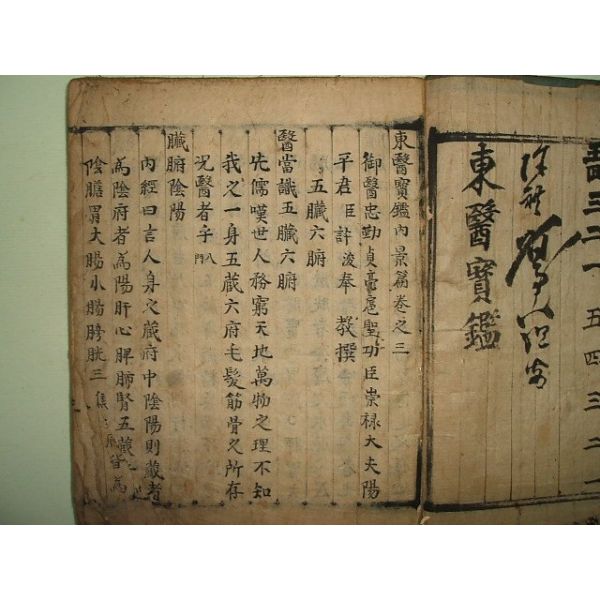 壽三二一五四三二一
東醫寶鑑
東醫寶鑑內景篇卷之三
御醫忠勤貞亮扈聖功臣崇祿大夫陽
平君臣許浚奉 教撰
五臟六腑
醫當識五臟六腑
先儒嘆世人務窮天地萬物之理不知
我之一身五蔵六府毛髮筋骨之所存
况醫者乎 入門
臟腑陰陽
內經曰言人身之蔵府中陰陽則蔵者
為陰府者為陽肝心脾肺腎五蔵
陰膽胃大腸小腸膀胱三焦六府皆為